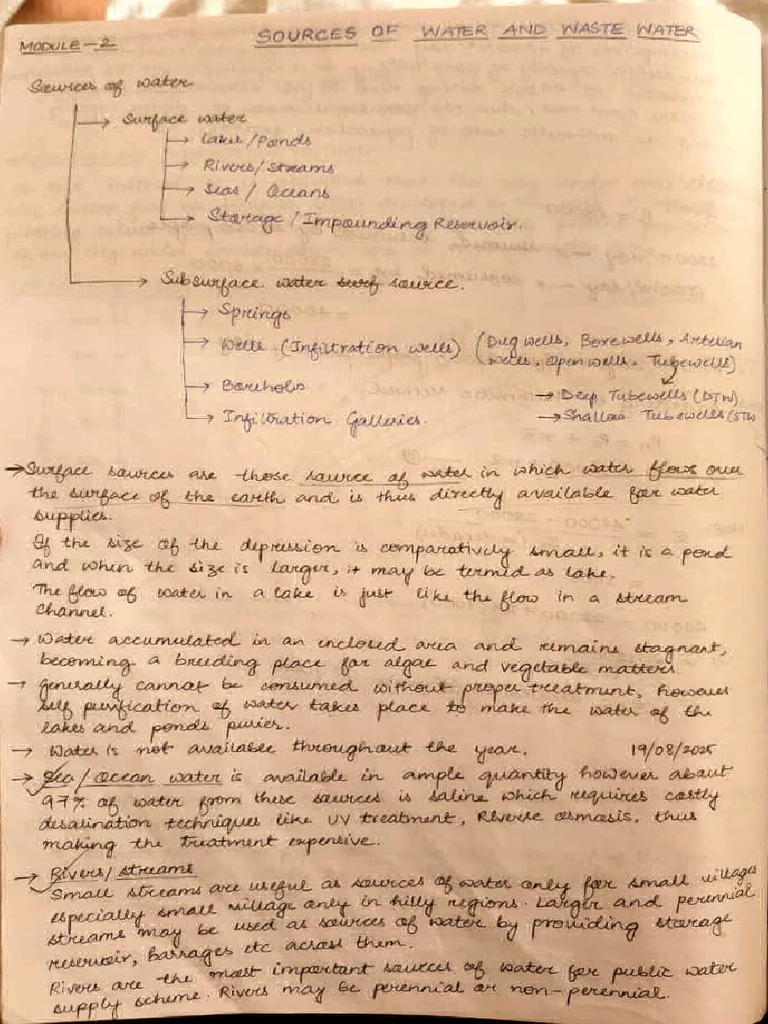 MODULE-2
SOURCES OF WATER AND WASTE WATER
Sources of water
→ Surface water
→ Lakes/Ponds
→ Rivers/Streams
→ Seas/Oceans
→ Storage/Impounding Reservoir.
→ Subsurface water surf source.
→ Springs
→ Wells (Infiltration wells) (Dug wells, Borewells, Artesian
wells, Open wells, Tubewells)
→ Boreholes
→ Deep Tubewells (DTW)
→ Infiltration Galleries.
→ Shallow Tubewells (STW
→ Surface sources are those source of water in which water flows over
the surface of the earth and is thus directly available for water
supplies.
If the size of the depression is comparatively small, it is a pond
and when the size is larger, it may be termed as lake.
The flow of water in a lake is just like the flow in a stream
channel.
→ Water accumulated in an enclosed area and remains stagnant,
becoming a breeding place for algae and vegetable matters.
→ Generally cannot be consumed without proper treatment, however
self purification of water takes place to make the water of the
lakes and ponds purier.
→ Water is not available throughout the year. 19/08/2025
→ Sea/Ocean water is available in ample quantity however about
97% of water from these sources is saline which requires costly
desalination techniques like UV treatment, Reverse osmosis, thus
making the treatment expensive.
→ Rivers/streams
Small streams are useful as sources of water only for small villages
especially small village only in hilly regions. Larger and perennial
streams may be used as sources of water by providing storage
reservoir, Barrages etc across them.
Rivers are the most important sources of water for public water
supply scheme. Rivers may be perennial or non-perennial.